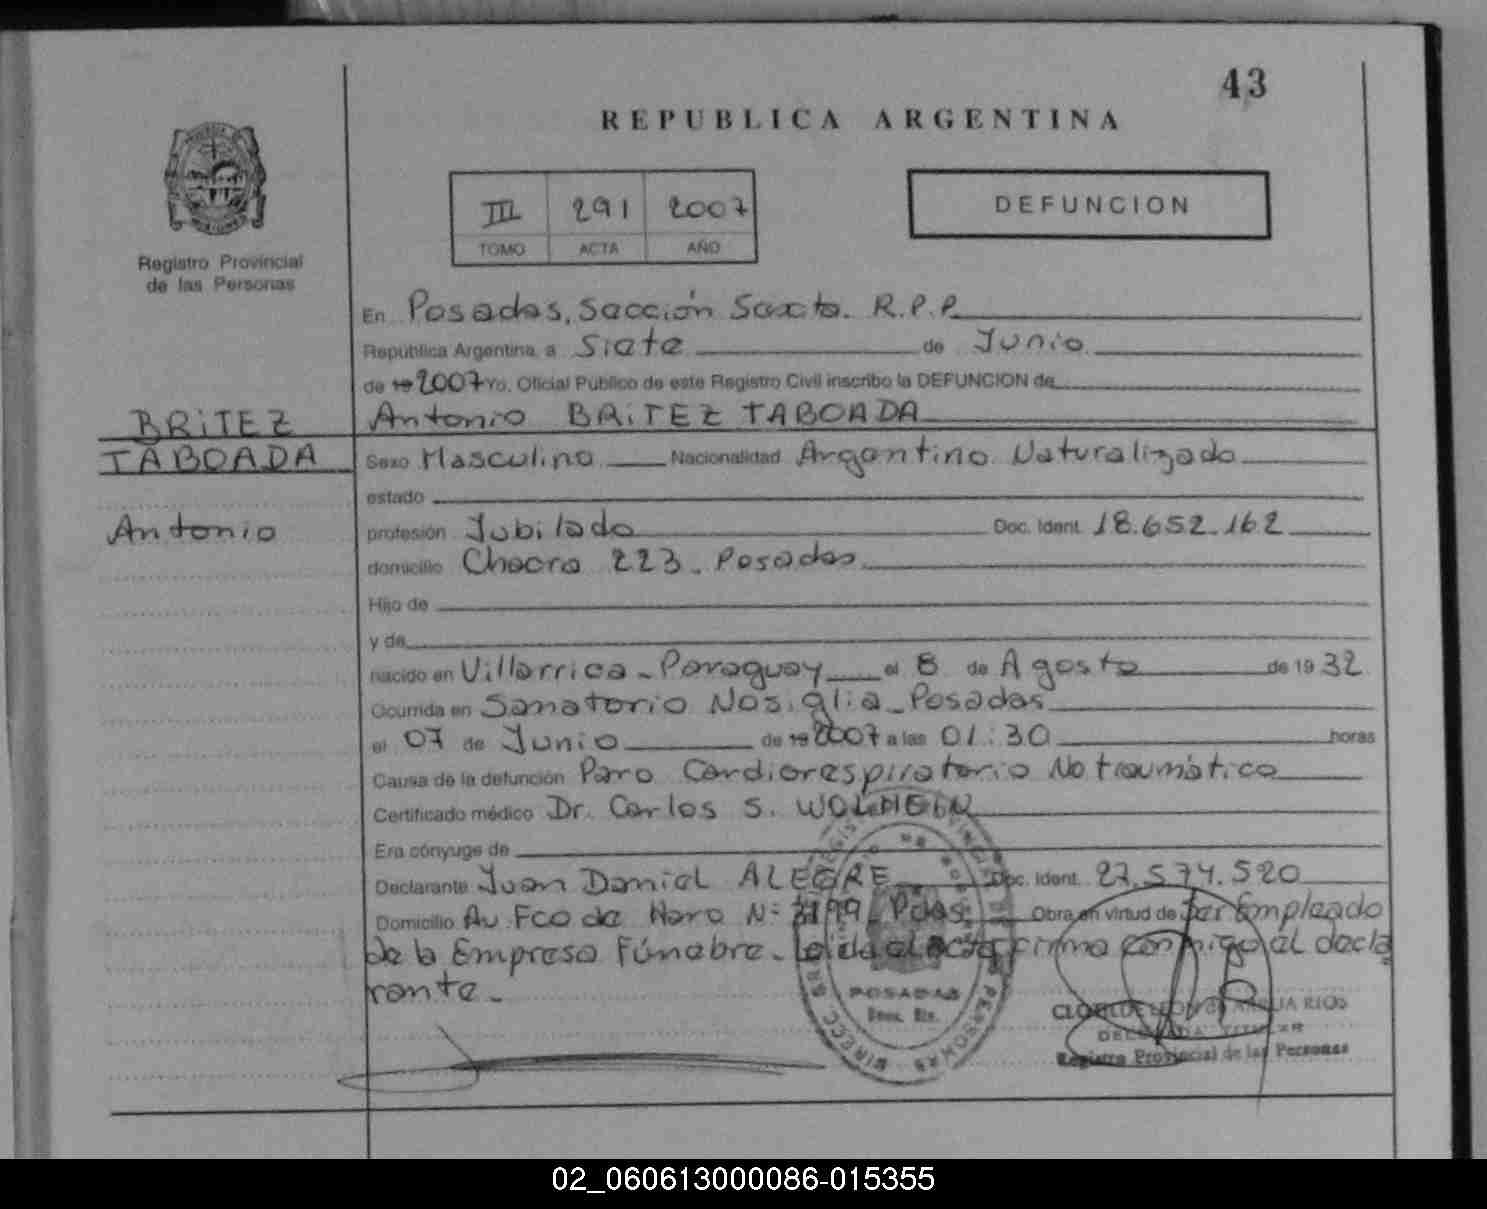 43
REPUBLICA ARGENTINA
III 291 2007
TOMO ACTA AÑO
DEFUNCION
Registro Provincial
de las Personas
En Posadas, Sección Sexta. R.P.P.
República Argentina, a Siete de Junio
de 19 2007 Yo, Oficial Público de este Registro Civil inscribo la DEFUNCION de
BRITEZ
TABOADA
Antonio
Antonio BRITEZ TABOADA
Sexo Masculino Nacionalidad Argentino Naturalizado
estado
profesión Jubilado Doc. Ident. 18.652.162
domicilio Chacra 223. Posadas
Hijo de
y de
nacido en Villarrica - Paraguay el 8 de Agosto de 19 32
Ocurrida en Sanatorio Nosiglia - Posadas
el 07 de Junio de 19 2007 a las 01:30 horas
Causa de la defunción Paro Cardiorespiratorio No traumático
Certificado médico Dr. Carlos S.
Era cónyuge de
Declarante Juan Daniel ALEGRE Doc. Ident. 27.574.520
Domicilio Av. Fco de Haro Nº Pdas. Obra en virtud de Ser Empleado
de la Empresa Fúnebre. Leida el acta firma conmigo el decla
rante.
POSADAS
RIOS
Registro Provincial de las Personas
02_060613000086-015355